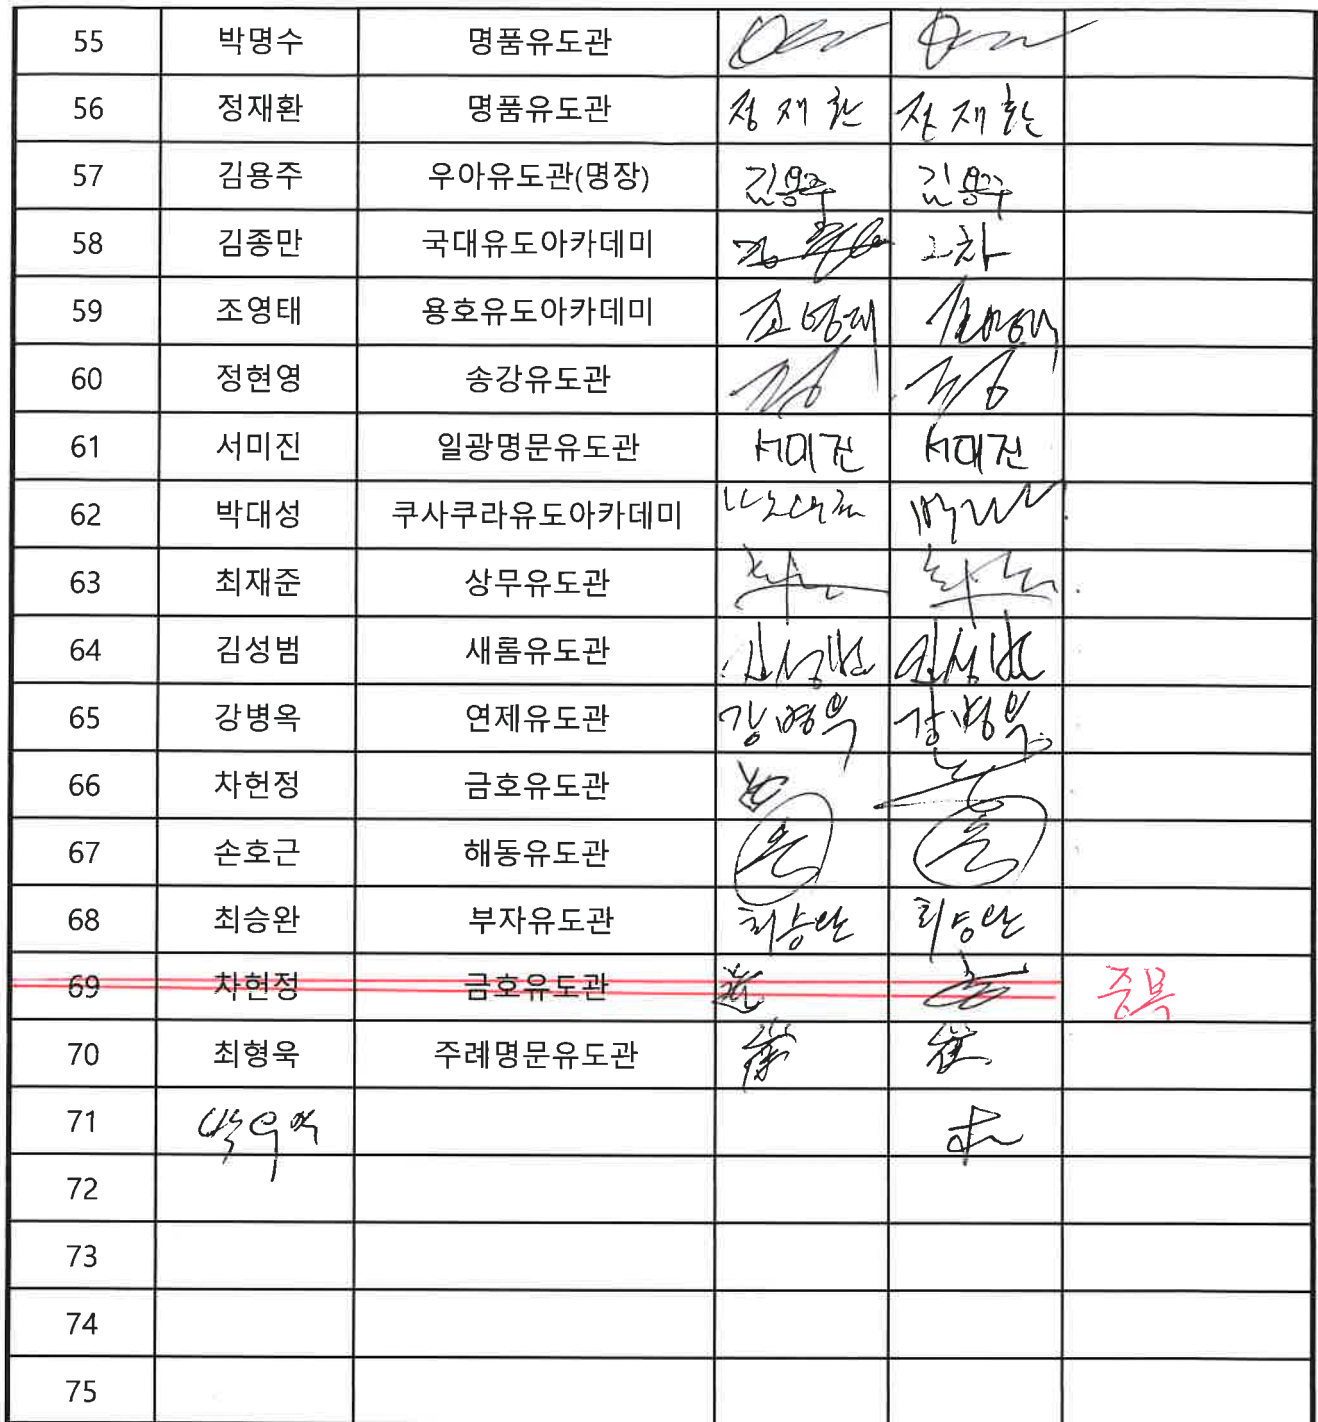 55 박명수 명품유도관
56 정재환 명품유도관 정재환 정재환
57 김용주 우아유도관(명장) 김용주 김용주
58 김종만 국대유도아카데미 2차
59 조영태 용호유도아카데미 조영태 조영태
60 정현영 송강유도관
61 서미진 일광명문유도관 서미진 서미진
62 박대성 쿠사쿠라유도아카데미
63 최재준 상무유도관
64 김성범 새롬유도관 김성범 김성범
65 강병옥 연제유도관 강병옥 강병옥
66 차헌정 금호유도관
67 손호근 해동유도관
68 최승완 부자유도관 최승완 최승완
69 차현정 금호유도관 중복
70 최형욱 주례명문유도관 崔
71
72
73
74
75